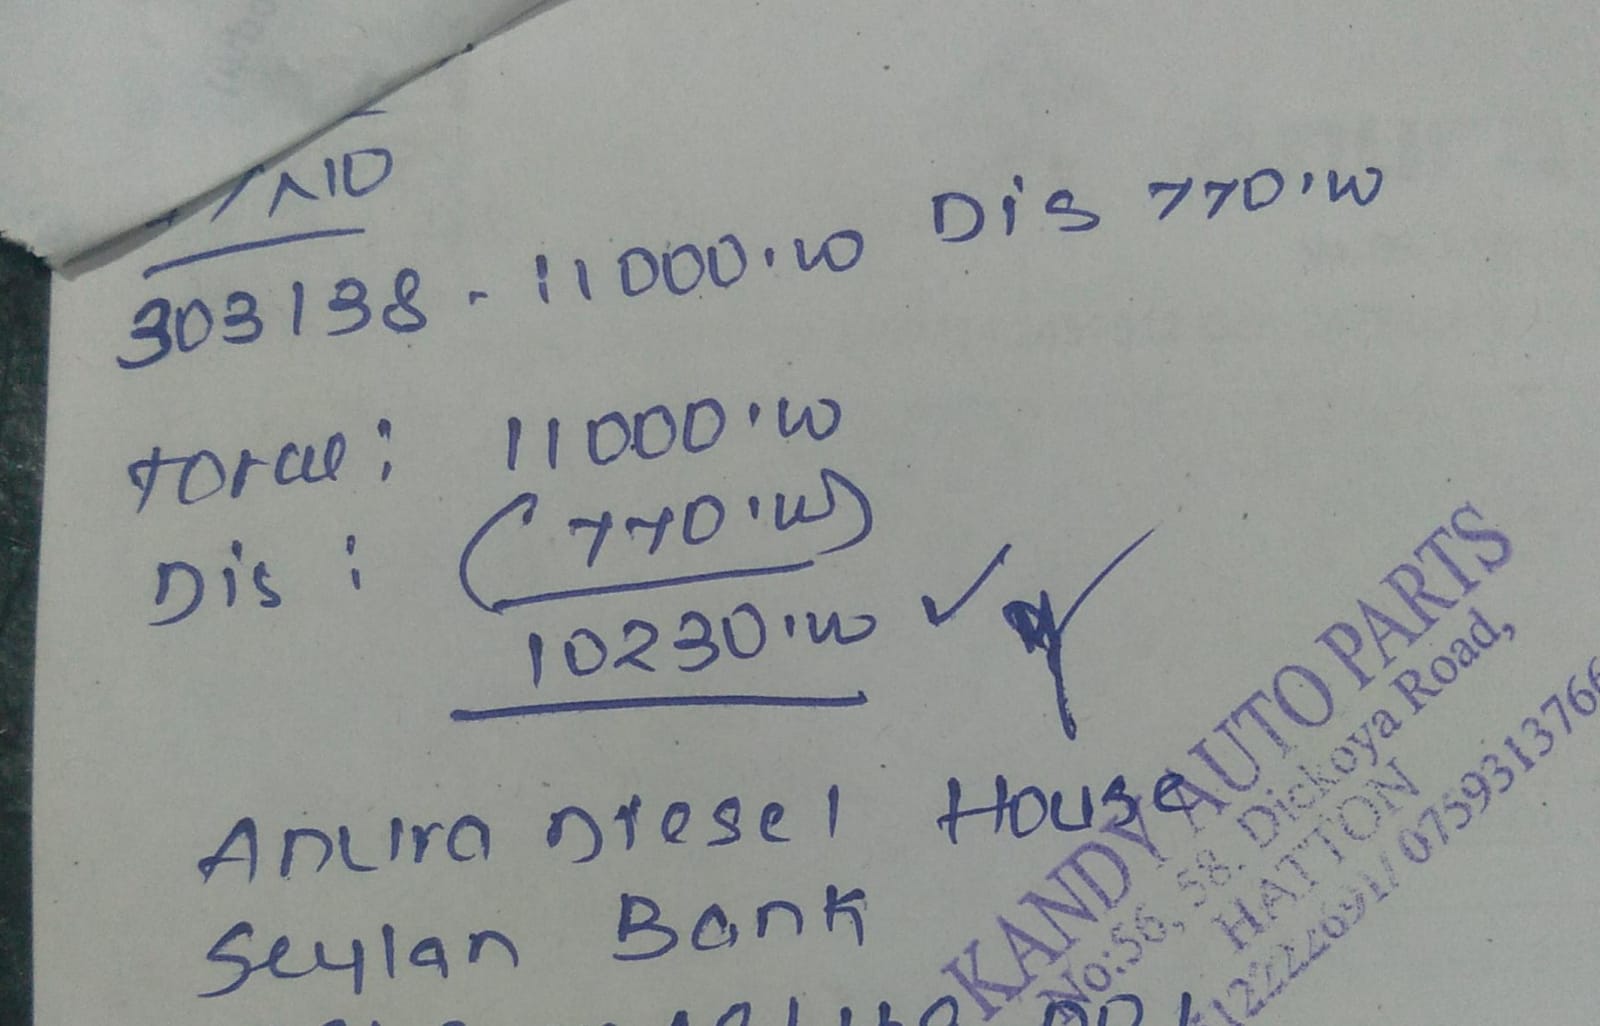 303138 - 11000.00 Dis 770.00
Total: 11000.00
Dis : (770.00)
10230.00
Anura Diesel House
Seylan Bank
KANDY AUTO PARTS
No:56, 58, Dickoya Road,
HATTON
0759313766